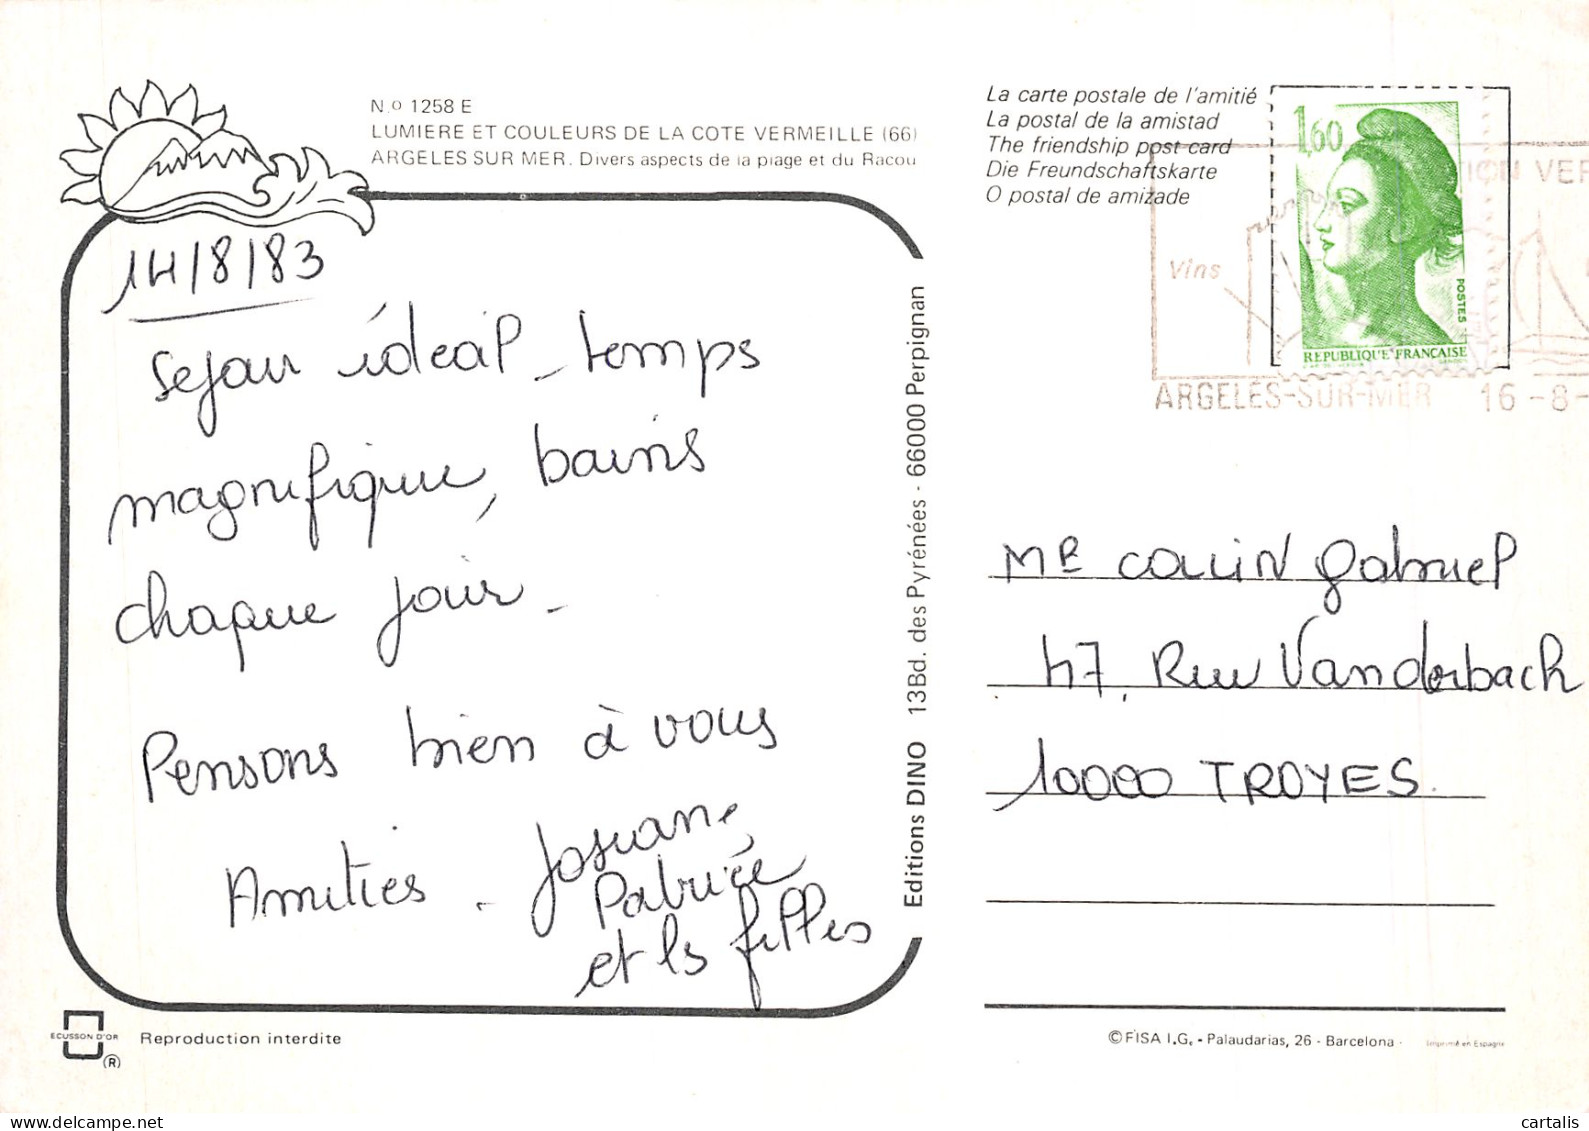 N.º 1258 E
LUMIERE ET COULEURS DE LA COTE VERMEILLE (66)
ARGELES SUR MER. Divers aspects de la plage et du Racou
14/8/83
sejour idéal - temps
magnifique, bains
chaque jour -
Pensons bien à vous
Amitiés - Josiane,
Patricie
et ls filles
ECUSSON D'OR
(R)
Reproduction interdite
Editions DINO 13Bd. des Pyrénées - 66000 Perpignan
La carte postale de l'amitié
La postal de la amistad
The friendship post card
Die Freundschaftskarte
O postal de amizade
1,60
POSTES
REPUBLIQUE FRANÇAISE
Vins
ARGELES-SUR-MER 16-8-
Mr COLLIN Gabriel
47, Rue Vanderbach
10000 TROYES.
© FISA I.G. - Palaudarias, 26 - Barcelona -
Imprimé en Espagne
cartalis